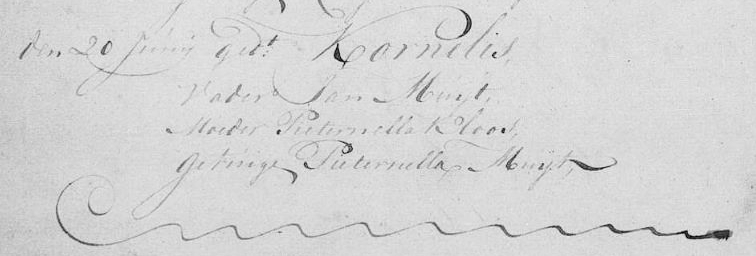 den 20 Junij gedt. Kornelis,
Vader Jan Muijt,
Moeder Pieternella Kloos,
getuige Pieternella Muijt,